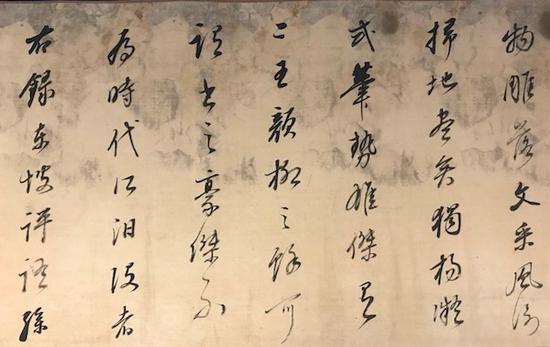 物雕落文采風流
掃地盡矣獨楊凝
式筆勢雄傑有
二王顏柳之餘可
謂書之豪傑不
為時代所汨沒者
右錄東坡評語孫